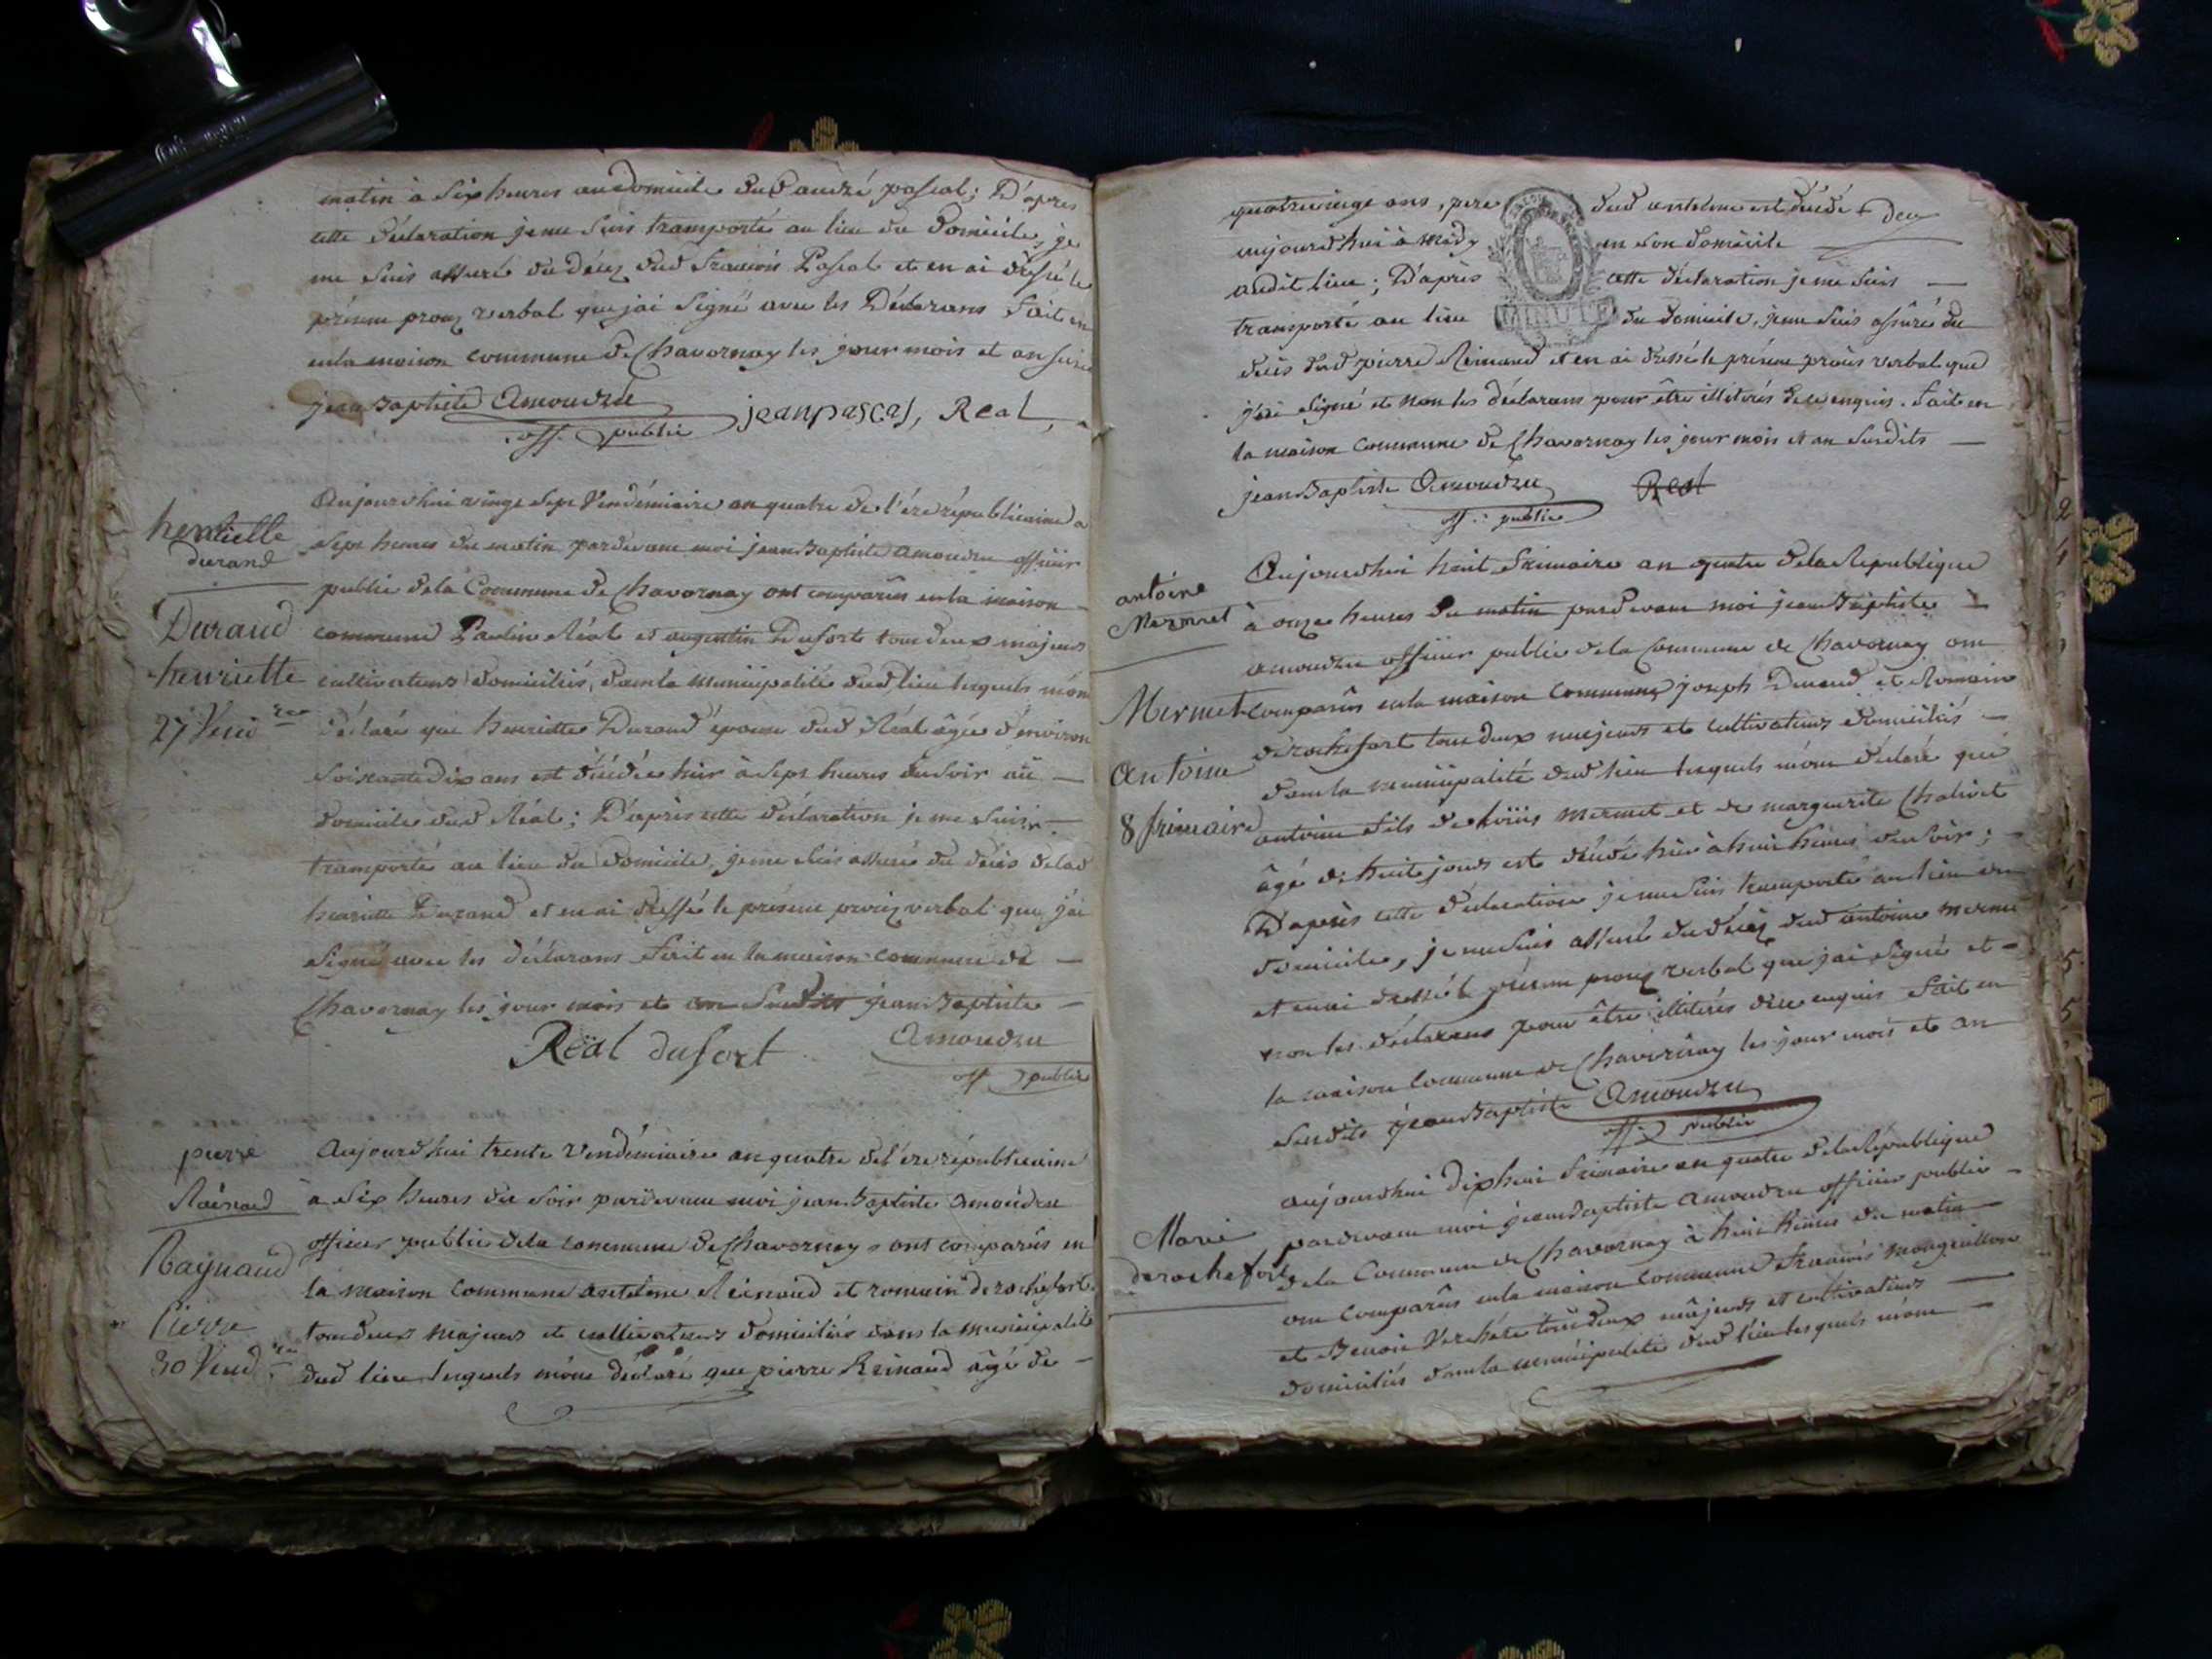 matin à six heures au domicile dud andré pascal; D'apres
cette déclaration je me suis transporté au lieu du domicile, je
me suis assuré du décez dud francois Pascal et en ai dressé le
présent procez verbal que jai signé avec les Déclarans fait en
en la maison commune de Chavornay les jour mois et an susd
jean Baptiste Amoudru
off. public
jean pascal, Real
henriette
durand
Durand
henriette
27 Vend re
Aujourdhui vingt sept Vendémiaire an quatre de l'ére républicaine a
sept heures du matin pardevant moi jean Baptiste amoudru officier
public de la Commune de Chavornay ont comparûs en la maison
commune Paulin Réal et augustin Dufort tous deux majeurs
cultivateurs domiciliés, dans la municipalité dud lieu lesquels mont
déclaré que henriette Durand épouse dud Réal âgée d'environ
soixante dix ans est décédée hier à sept heures du soir au
domicile dud Réal; D'après cette déclaration je me suis
transporté au lieu du domicile, je me suis assuré du décès de lad
henriette Durand et en ai dressé le présent procez verbal que jai
signé avec les déclarans fait en la maison commune de
Chavornay les jour mois et an susdits jean Baptiste
Amoudru
off public
Réal dufort
pierre
Reinaud
Raynaud
Pierre
30 Vend re
Aujourdhui trente vendémiaire an quatre de l'ére républicaine
à six heures du soir pardevant moi jean Baptiste amoudru
officier public de la commune de Chavornay, ont comparûs en
la maison commune antelme Reinaud et romain derochefort
tous deux majeurs et cultivateurs domiciliés dans la municipalité
dud lieu lesquels mont déclaré que pierre Reinaud âgé de
quatrevingt ans, pere dud antelme est décédé
aujourdhui à midy en son domicile
audit lieu; D'après cette déclaration je me suis
transporté au lieu du domicile, je me suis assuré du
MINUTE
décès dud pierre Reinaud et en ai dressé le présent procès verbal que
j'ai signé et non les déclarans pour être illitérés de ce enquis. fait en
la maison commune de Chavornay les jour mois et an susdits
jean Baptiste Amoudru
off. public
Real
antoine
Mermet
Mermet
Antoine
8 frimaire
Aujourdhui huit frimaire an quatre de la République
à onze heures du matin pardevant moi jean Baptiste
amoudru officier public de la Commune de Chavornay ont
comparûs en la maison commune, joseph Durand et Romain
derochefort tous deux majeurs et cultivateurs domiciliés
dans la municipalité dud lieu lesquels mont déclaré que
antoine fils de loüis mermet et de marguerite Chalivet
âgé de huit jours est décédé hier à huit heures du soir;
D'après cette déclaration je me suis transporté au lieu du
domicile, je me suis assuré du décez dud antoine merme
et en ai dressé le présent procez verbal que jai signé et
non les déclarans pour être illitérés de ce enquis fait en
la maison commune de Chavornay les jour mois et an
susdits jean Baptiste Amoudru
off. public
Marie
derochefort
aujourdhui dixhuit frimaire an quatre de la République
pardevant moi jean Baptiste Amoudru officier public
de la Commune de Chavornay à huit heures du matin
ont comparûs en la maison commune francois
et Benoit tous deux majeurs et cultivateurs
domiciliés dans la municipalité dud lieu lesquels mont